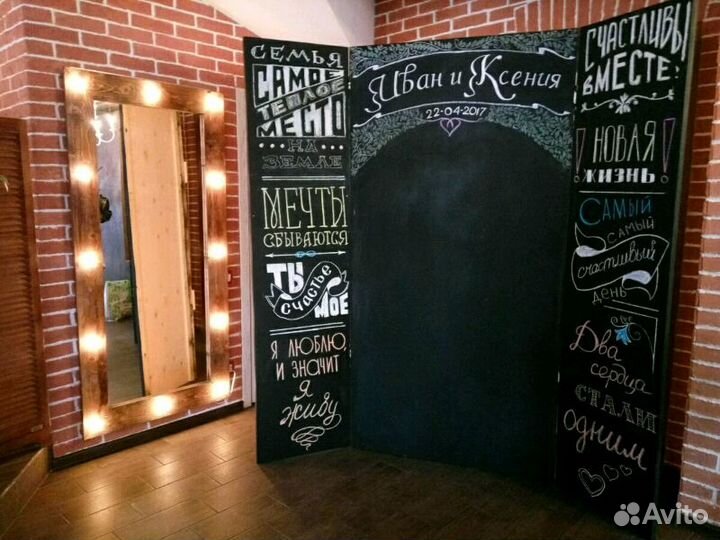 СЕМЬЯ
САМОЕ
ТЕПЛОЕ
МЕСТО
НА
ЗЕМЛЕ
МЕЧТЫ
СБЫВАЮТСЯ
ТЫ
СЧАСТЬЕ
МОЕ
Я ЛЮБЛЮ,
И ЗНАЧИТ
Я
живу
Иван и Ксения
22-04-2017
СЧАСТЛИВЫ
ВМЕСТЕ
! НОВАЯ !
ЖИЗНЬ
САМЫЙ
САМЫЙ
счастливый
ДЕНЬ
Два
сердца
СТАЛИ
одним
Avito